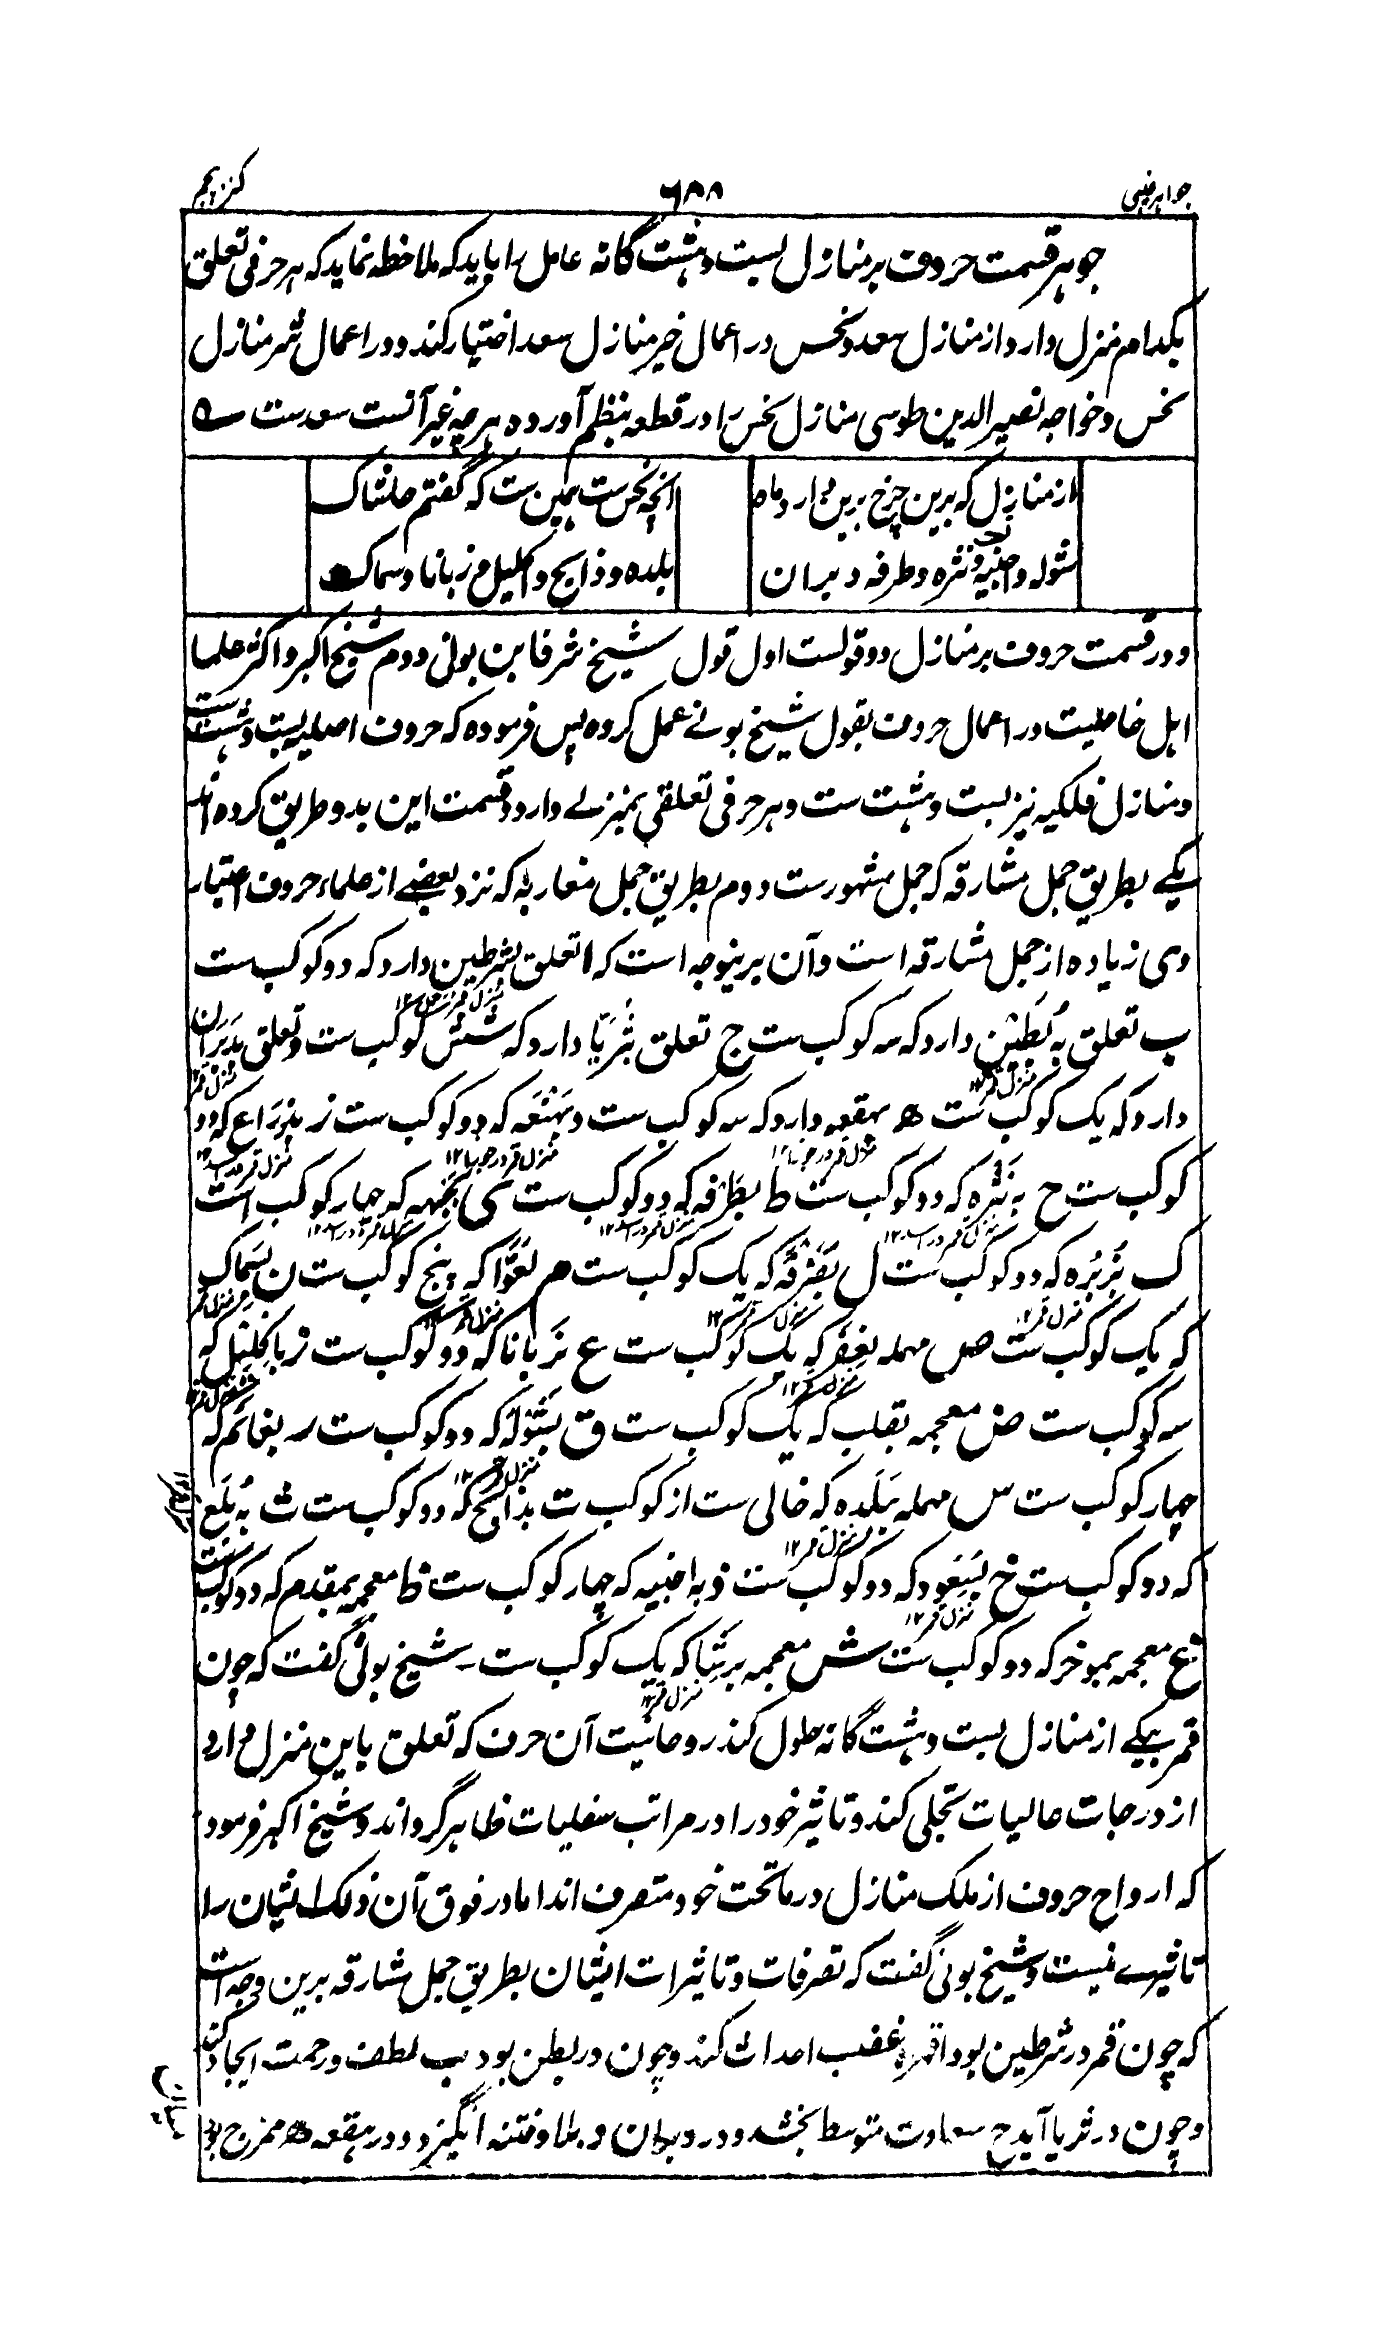 جواہر غیبی
۶۸۸
کنز پنجم
جوہر قسمت حروف بر منازل بست و ہشت گانہ عامل را باید کہ ملاحظہ نماید کہ ہر حرفی تعلق
بکدام منزل دارد از منازل سعد و نحس در اعمال خیر منازل سعد اختیار کند و در اعمال شر منازل
نحس و خواجہ نصیر الدین طوسی منازل نحس را در قطعہ بنظم آوردہ ہر چہ غیر آنست سعدست ؎
از منازل کہ برین چرخ برین دارد ماہ
انچہ نحس ست ہمین ست کہ گفتم حاشاک
شولہ و اخبیہ و نثرہ و طرفہ دبران
بلدہ و ذابح و اکلیل و زبانا و سماک
و در قسمت حروف بر منازل دو قولست اول قول شیخ شرفا بن بونی دوم شیخ اکبر و اکثر علما
اہل خاصیت در اعمال حروف بقول شیخ بونے عمل کردہ پس فرمودہ کہ حروف اصلیہ بست و ہشت ست
و منازل فلکیہ نیز بست و ہشت ست و ہر حرفی تعلقی بمنزلے دارد و قسمت این بدو طریق کردہ اند
یکے بطریق جمل مشارقہ کہ جمل مشہورست دوم بطریق جمل مغاربہ کہ نزد بعضے از علماء حروف اعتبار
وی زیادہ از جمل مشارقہ است و آن برینوجہ است کہ ا تعلق بشرطین دارد کہ دو کوکب ست
ب تعلق بہ بُطَیْن دارد کہ سہ کوکب ست ج تعلق بثُرَیّا دارد کہ شش کوکب ست د تعلق بدَبَران
دارد کہ یک کوکب ست ھ بہقعہ دارد کہ سہ کوکب ست و بہَنْعَہ کہ دو کوکب ست ز بذِرَاع کہ دو
کوکب ست ح بہ نَثْرہ کہ دو کوکب ست ط بطَرْفہ کہ دو کوکب ست ی بجَبْہہ کہ چہار کوکب است
ک بزُبُرہ کہ دو کوکب ست ل بصَرْفَہ کہ یک کوکب ست م بعَوّا کہ پنج کوکب ست ن بسَماک
کہ یک کوکب ست ص مہملہ بغَفَر کہ یک کوکب ست ع بزَبانا کہ دو کوکب ست ف باکلیل کہ
سہ کوکب ست ض معجمہ بقلب کہ یک کوکب ست ق بشَوْلَہ کہ دو کوکب ست ر بنعائم کہ
چہار کوکب ست س مہملہ ببَلدہ کہ خالی ست از کوکب ت بذابح کہ دو کوکب ست ث بہ بُلَع
کہ دو کوکب ست خ بسُعود کہ دو کوکب ست ذ بہ اخبیہ کہ چہار کوکب ست ظ معجمہ بمقدم کہ دو کوکب ست
غ معجمہ بموخر کہ دو کوکب ست ش معجمہ برشا کہ یک کوکب ست۔ شیخ بونی گفت کہ چون
قمر بیکے از منازل بست و ہشت گانہ حلول کند روحانیت آن حرف کہ تعلق باین منزل دارد
از درجات عالیات تجلی کند و تاثیر خود را در مراتب سفلیات ظاہر گرداند و شیخ اکبر فرمود
کہ ارواح حروف از ملک منازل در ماتحت خود متصرف اند اما در فوق آن فلک ایشان را
تاثیرے نیست و شیخ بونی گفت کہ تصرفات و تاثیرات ایشان بطریق جمل مشارقہ برین وجہ است
کہ چون قمر در شرطین بود ا قہر و غضب احداث کند و چون در بطین بود ب لطف و رحمت ایجاد کند
و چون در ثریا آید ج سعادت متوسط بخشد و در دبران د بلا و فتنہ انگیزد و در ہقعہ ھ ممزج بود